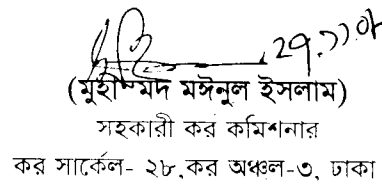 ২৭.১১.০৮
(মুহাম্মদ মঈনুল ইসলাম)
সহকারী কর কমিশনার
কর সার্কেল- ২৮,কর অঞ্চল-৩, ঢাকা